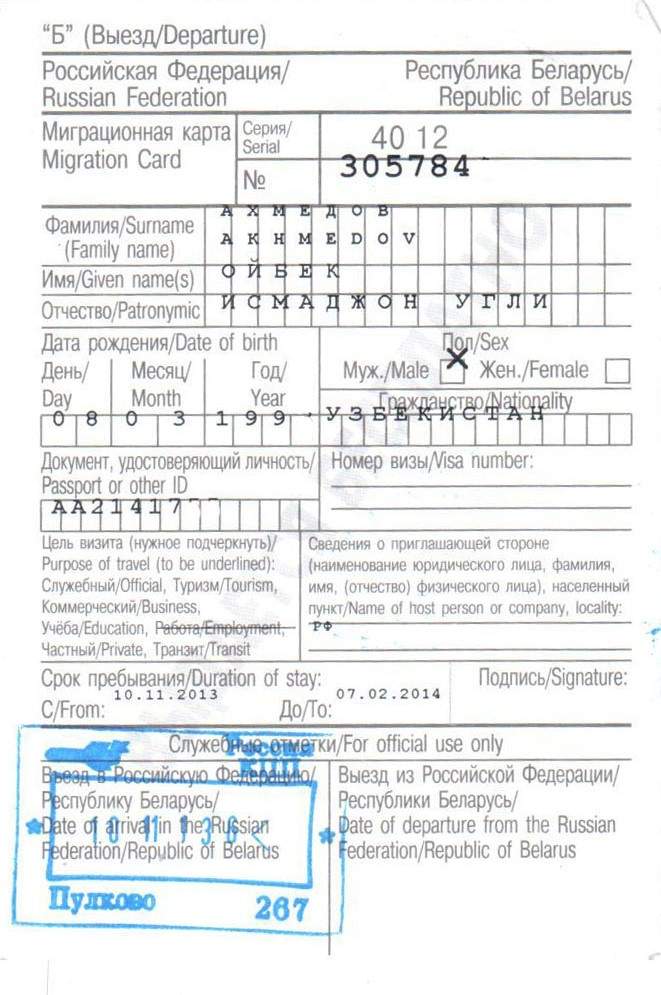 “Б” (Выезд/Departure)
Российская Федерация/ Республика Беларусь/
Russian Federation Republic of Belarus
Миграционная карта
Migration Card
Серия/
Serial
40 12
№ 305784
Фамилия/Surname
(Family name)
АХМЕДОВ
AKHMEDOV
Имя/Given name(s) ОЙБЕК
Отчество/Patronymic ИСМАДЖОН УГЛИ
Дата рождения/Date of birth
Пол/Sex
День/ Месяц/ Год/
Day Month Year
Муж./Male X Жен./Female
Гражданство/Nationality
08 03 199
УЗБЕКИСТАН
Документ, удостоверяющий личность/
Passport or other ID
AA21417
Номер визы/Visa number:
Цель визита (нужное подчеркнуть)/
Purpose of travel (to be underlined):
Служебный/Official, Туризм/Tourism,
Коммерческий/Business,
Учёба/Education, Работа/Employment,
Частный/Private, Транзит/Transit
Сведения о приглашающей стороне
(наименование юридического лица, фамилия,
имя, (отчество) физического лица), населенный
пункт/Name of host person or company, locality:
РФ
Срок пребывания/Duration of stay:
С/From: 10.11.2013 До/To: 07.02.2014
Подпись/Signature:
Служебные отметки/For official use only
Въезд в Российскую Федерацию/
Республику Беларусь/
Date of arrival in the Russian
Federation/Republic of Belarus
Выезд из Российской Федерации/
Республики Беларусь/
Date of departure from the Russian
Federation/Republic of Belarus
Россия
КПП
10 11 13
Пулково 267